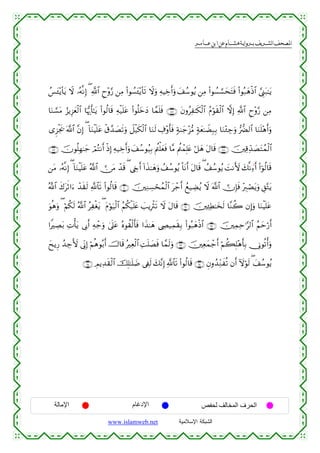 المصحف الشريف برواية هشام عن ابن عامر
يَٰبَنِيَّ ٱذْهَبُوا۟ فَتَحَسَّسُوا۟ مِن يُوسُفَ وَأَخِيهِ وَلَا تَا۟يْـَٔسُوا۟ مِن رَّوْحِ ٱللَّهِ ۖ إِنَّهُۥ لَا يَا۟يْـَٔسُ
مِن رَّوْحِ ٱللَّهِ إِلَّا ٱلْقَوْمُ ٱلْكَٰفِرُونَ ۝ فَلَمَّا دَخَلُوا۟ عَلَيْهِ قَالُوا۟ يَٰٓأَيُّهَا ٱلْعَزِيزُ مَسَّنَا
وَأَهْلَنَا ٱلضُّرُّ وَجِئْنَا بِبِضَٰعَةٍ مُّزْجَىٰةٍ فَأَوْفِ لَنَا ٱلْكَيْلَ وَتَصَدَّقْ عَلَيْنَآ ۖ إِنَّ ٱللَّهَ يَجْزِي
ٱلْمُتَصَدِّقِينَ ۝ قَالَ هَلْ عَلِمْتُم مَّا فَعَلْتُم بِيُوسُفَ وَأَخِيهِ إِذْ أَنتُمْ جَٰهِلُونَ ۝
قَالُوٓا۟ أَءِنَّكَ لَأَنتَ يُوسُفُ ۖ قَالَ أَنَا۠ يُوسُفُ وَهَٰذَآ أَخِي ۖ قَدْ مَنَّ ٱللَّهُ عَلَيْنَآ ۖ إِنَّهُۥ مَن
يَتَّقِ وَيَصْبِرْ فَإِنَّ ٱللَّهَ لَا يُضِيعُ أَجْرَ ٱلْمُحْسِنِينَ ۝ قَالُوا۟ تَٱللَّهِ لَقَدْ ءَاثَرَكَ ٱللَّهُ
عَلَيْنَا وَإِن كُنَّا لَخَٰطِـِٔينَ ۝ قَالَ لَا تَثْرِيبَ عَلَيْكُمُ ٱلْيَوْمَ ۖ يَغْفِرُ ٱللَّهُ لَكُمْ ۖ وَهُوَ
أَرْحَمُ ٱلرَّٰحِمِينَ ۝ ٱذْهَبُوا۟ بِقَمِيصِي هَٰذَا فَأَلْقُوهُ عَلَىٰ وَجْهِ أَبِي يَأْتِ بَصِيرًا
وَأْتُونِي بِأَهْلِكُمْ أَجْمَعِينَ ۝ وَلَمَّا فَصَلَتِ ٱلْعِيرُ قَالَ أَبُوهُمْ إِنِّي لَأَجِدُ رِيحَ
يُوسُفَ ۖ لَوْلَآ أَن تُفَنِّدُونِ ۝ قَالُوا۟ تَٱللَّهِ إِنَّكَ لَفِي ضَلَٰلِكَ ٱلْقَدِيمِ ۝
الحرف المخالف لحفص الإدغام الإمالة
الشبكة الإسلامية www.islamweb.net